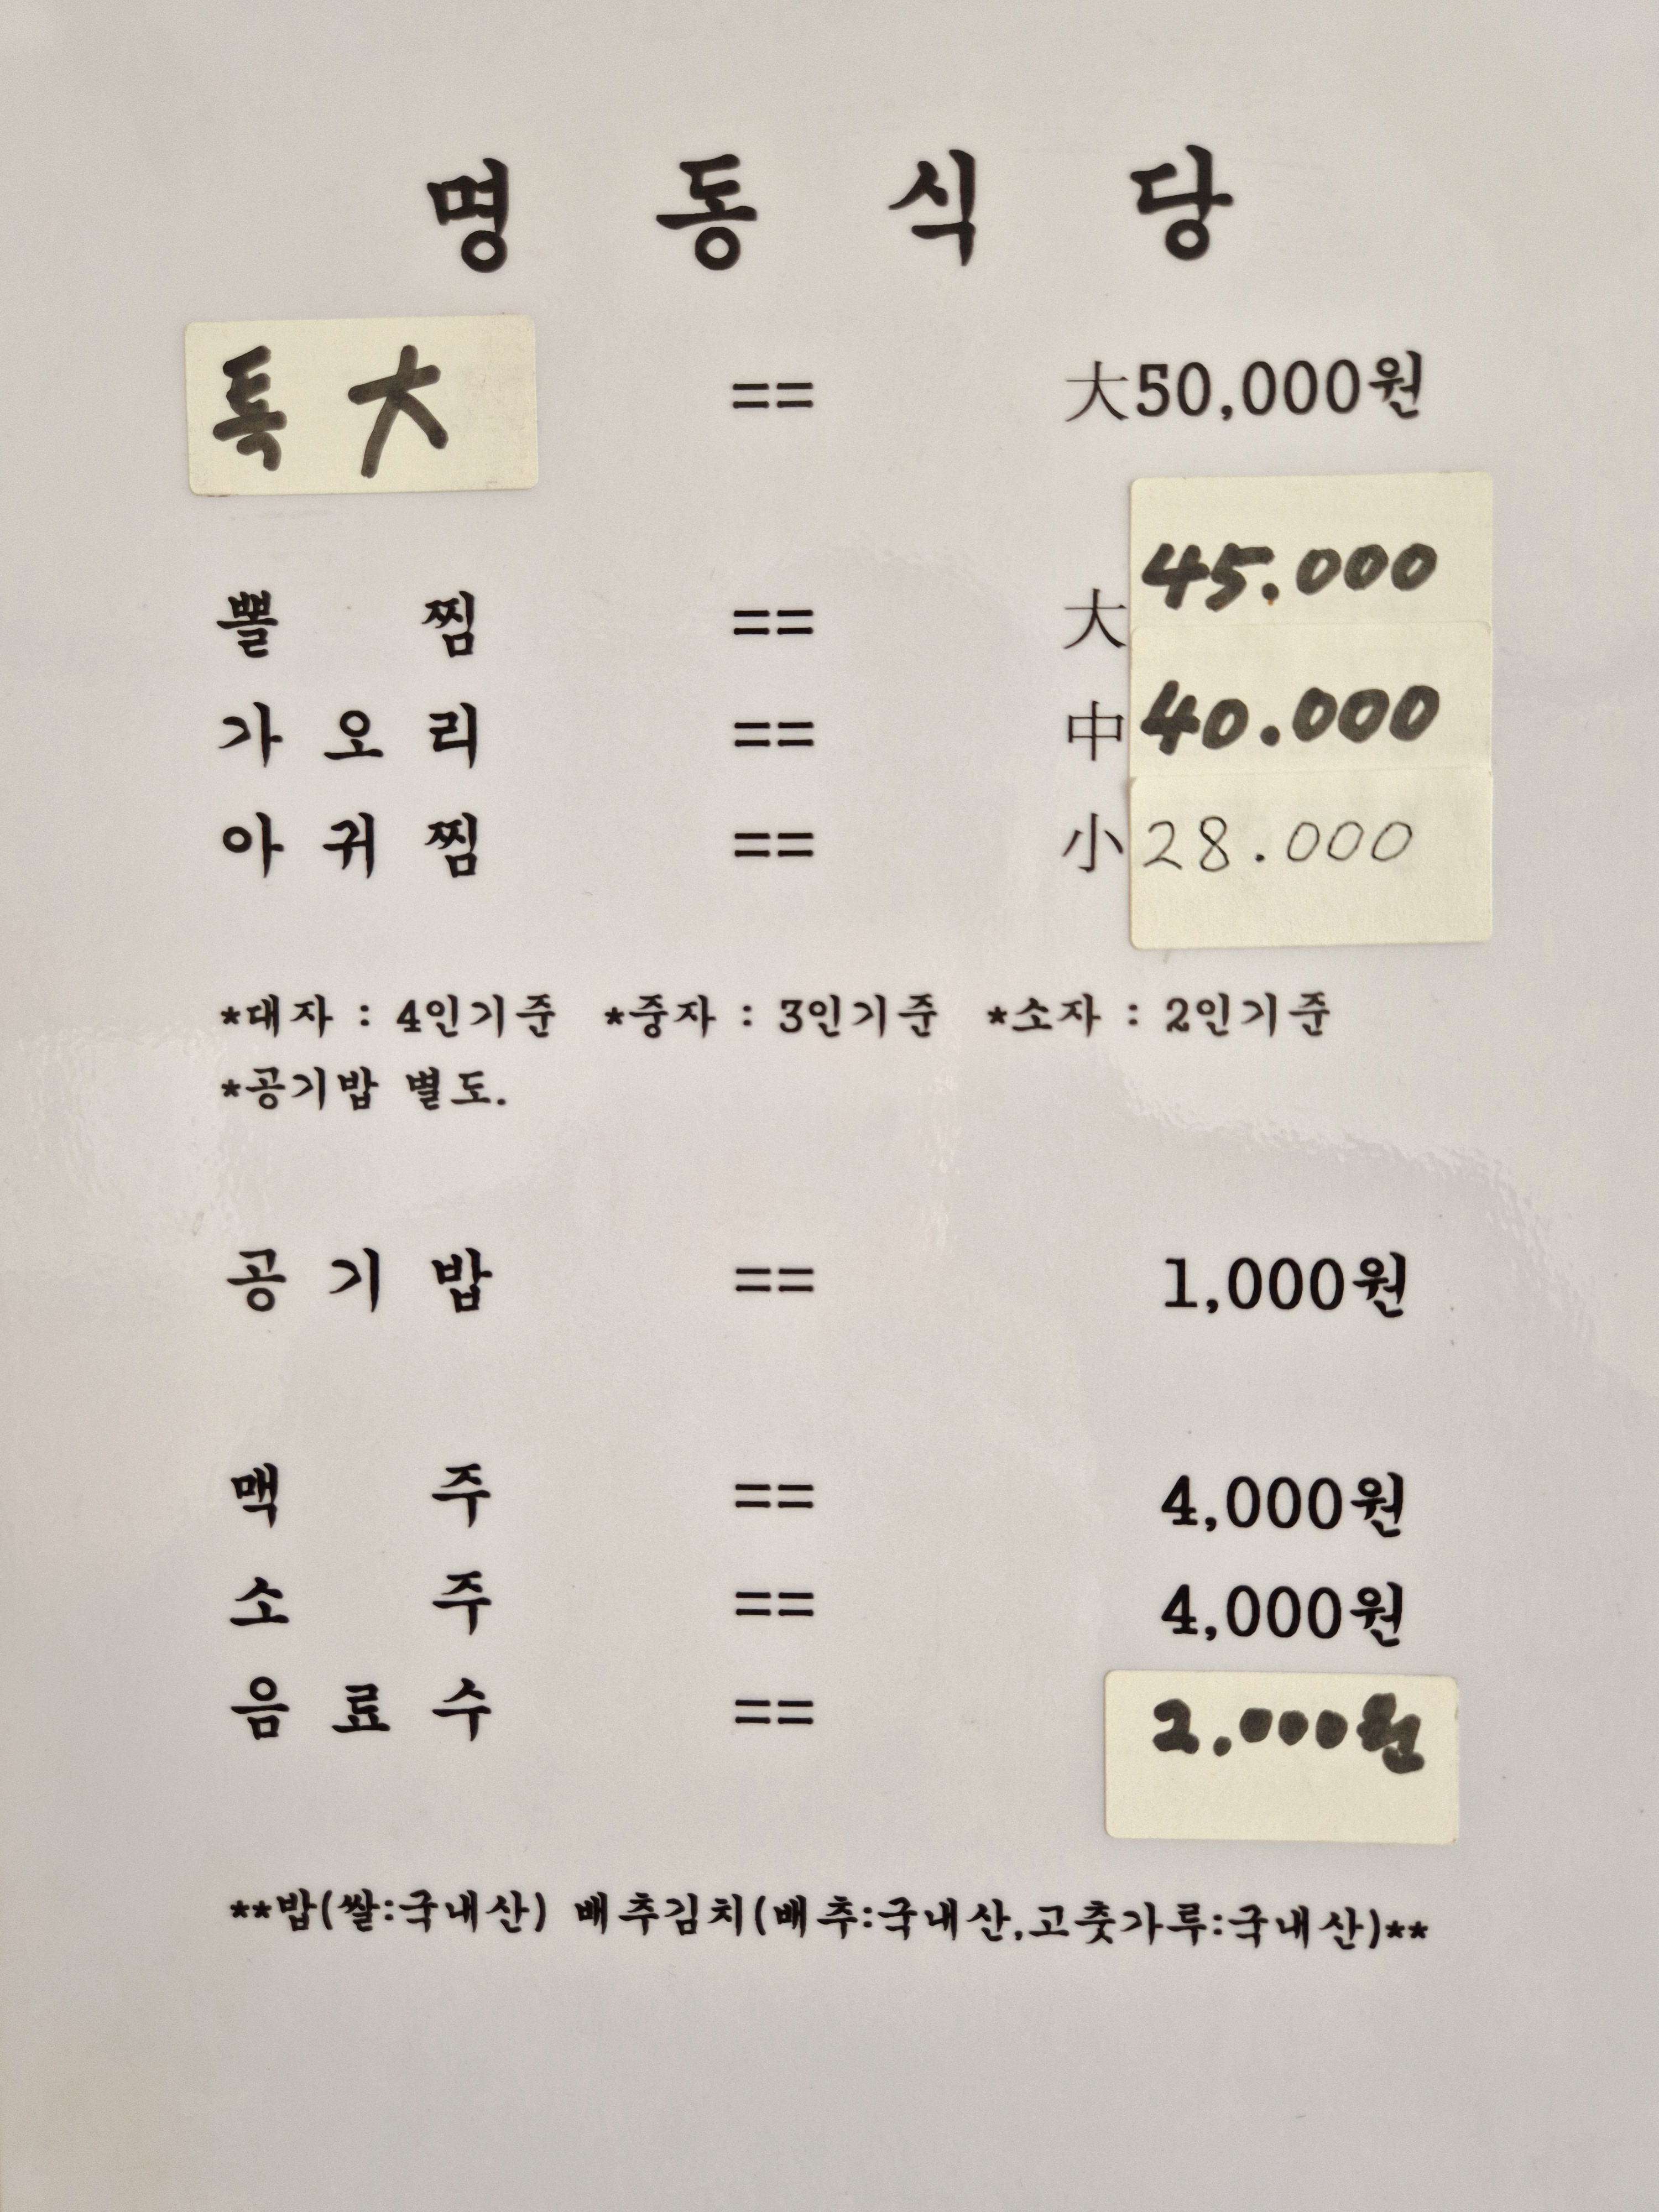 명 동 식 당
특 大 == 大50,000원
뽈 찜 == 大 45.000
가 오 리 == 中 40.000
아 귀 찜 == 小 28.000
*대자 : 4인기준 *중자 : 3인기준 *소자 : 2인기준
*공기밥 별도.
공 기 밥 == 1,000원
맥 주 == 4,000원
소 주 == 4,000원
음 료 수 == 2.000원
**밥(쌀:국내산) 배추김치(배추:국내산,고춧가루:국내산)**